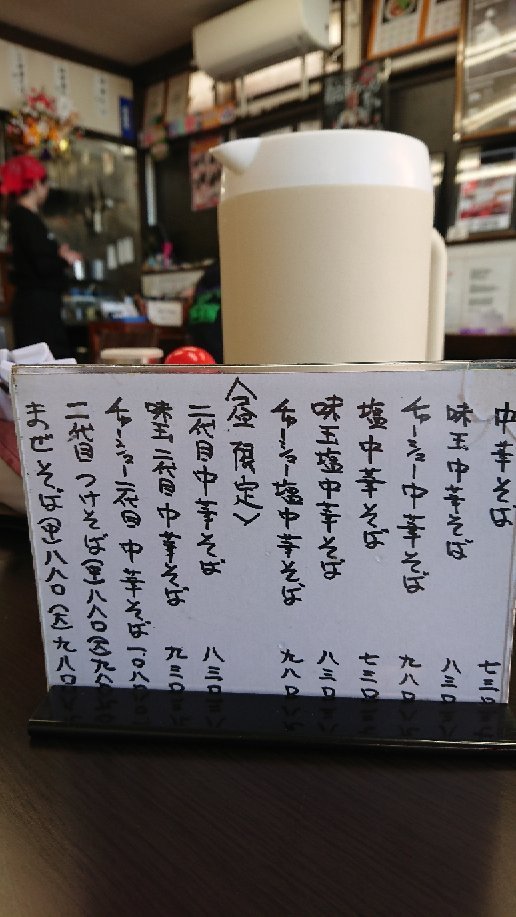 中華そば 七三〇
味玉中華そば 八三〇
チャーシュー中華そば 九八〇
塩中華そば 七三〇
味玉塩中華そば 八三〇
チャーシュー塩中華そば 九八〇
〈昼限定〉
二代目中華そば 八三〇
味玉二代目中華そば 九三〇
チャーシュー二代目中華そば 一〇八〇
二代目つけそば(中)八八〇(大)九八〇
まぜそば(中)八八〇(大)九八〇